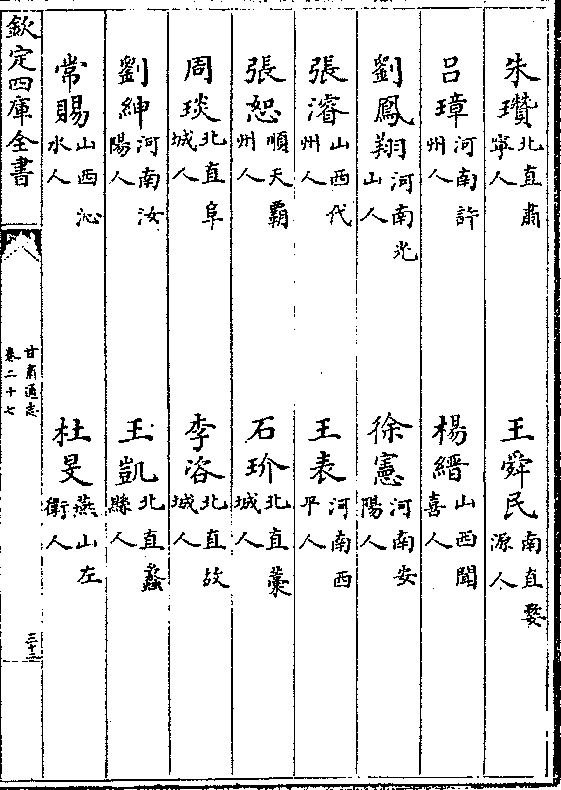 朱瓚北直肅寧人 王舜民南直婺源人
呂璋河南許州人 楊縉山西聞喜人
劉鳳翔河南光山人 徐憲河南安陽人
張濬山西代州人 王表河南西平人
張恕順天霸州人 石玠北直藁城人
周琰北直阜城人 李洛北直故城人
劉紳河南汝陽人 王凱北直蠡縣人
常賜山西沁水人 杜旻燕山左衛人
欽定四庫全書
甘肅通志
卷二十七
三十三